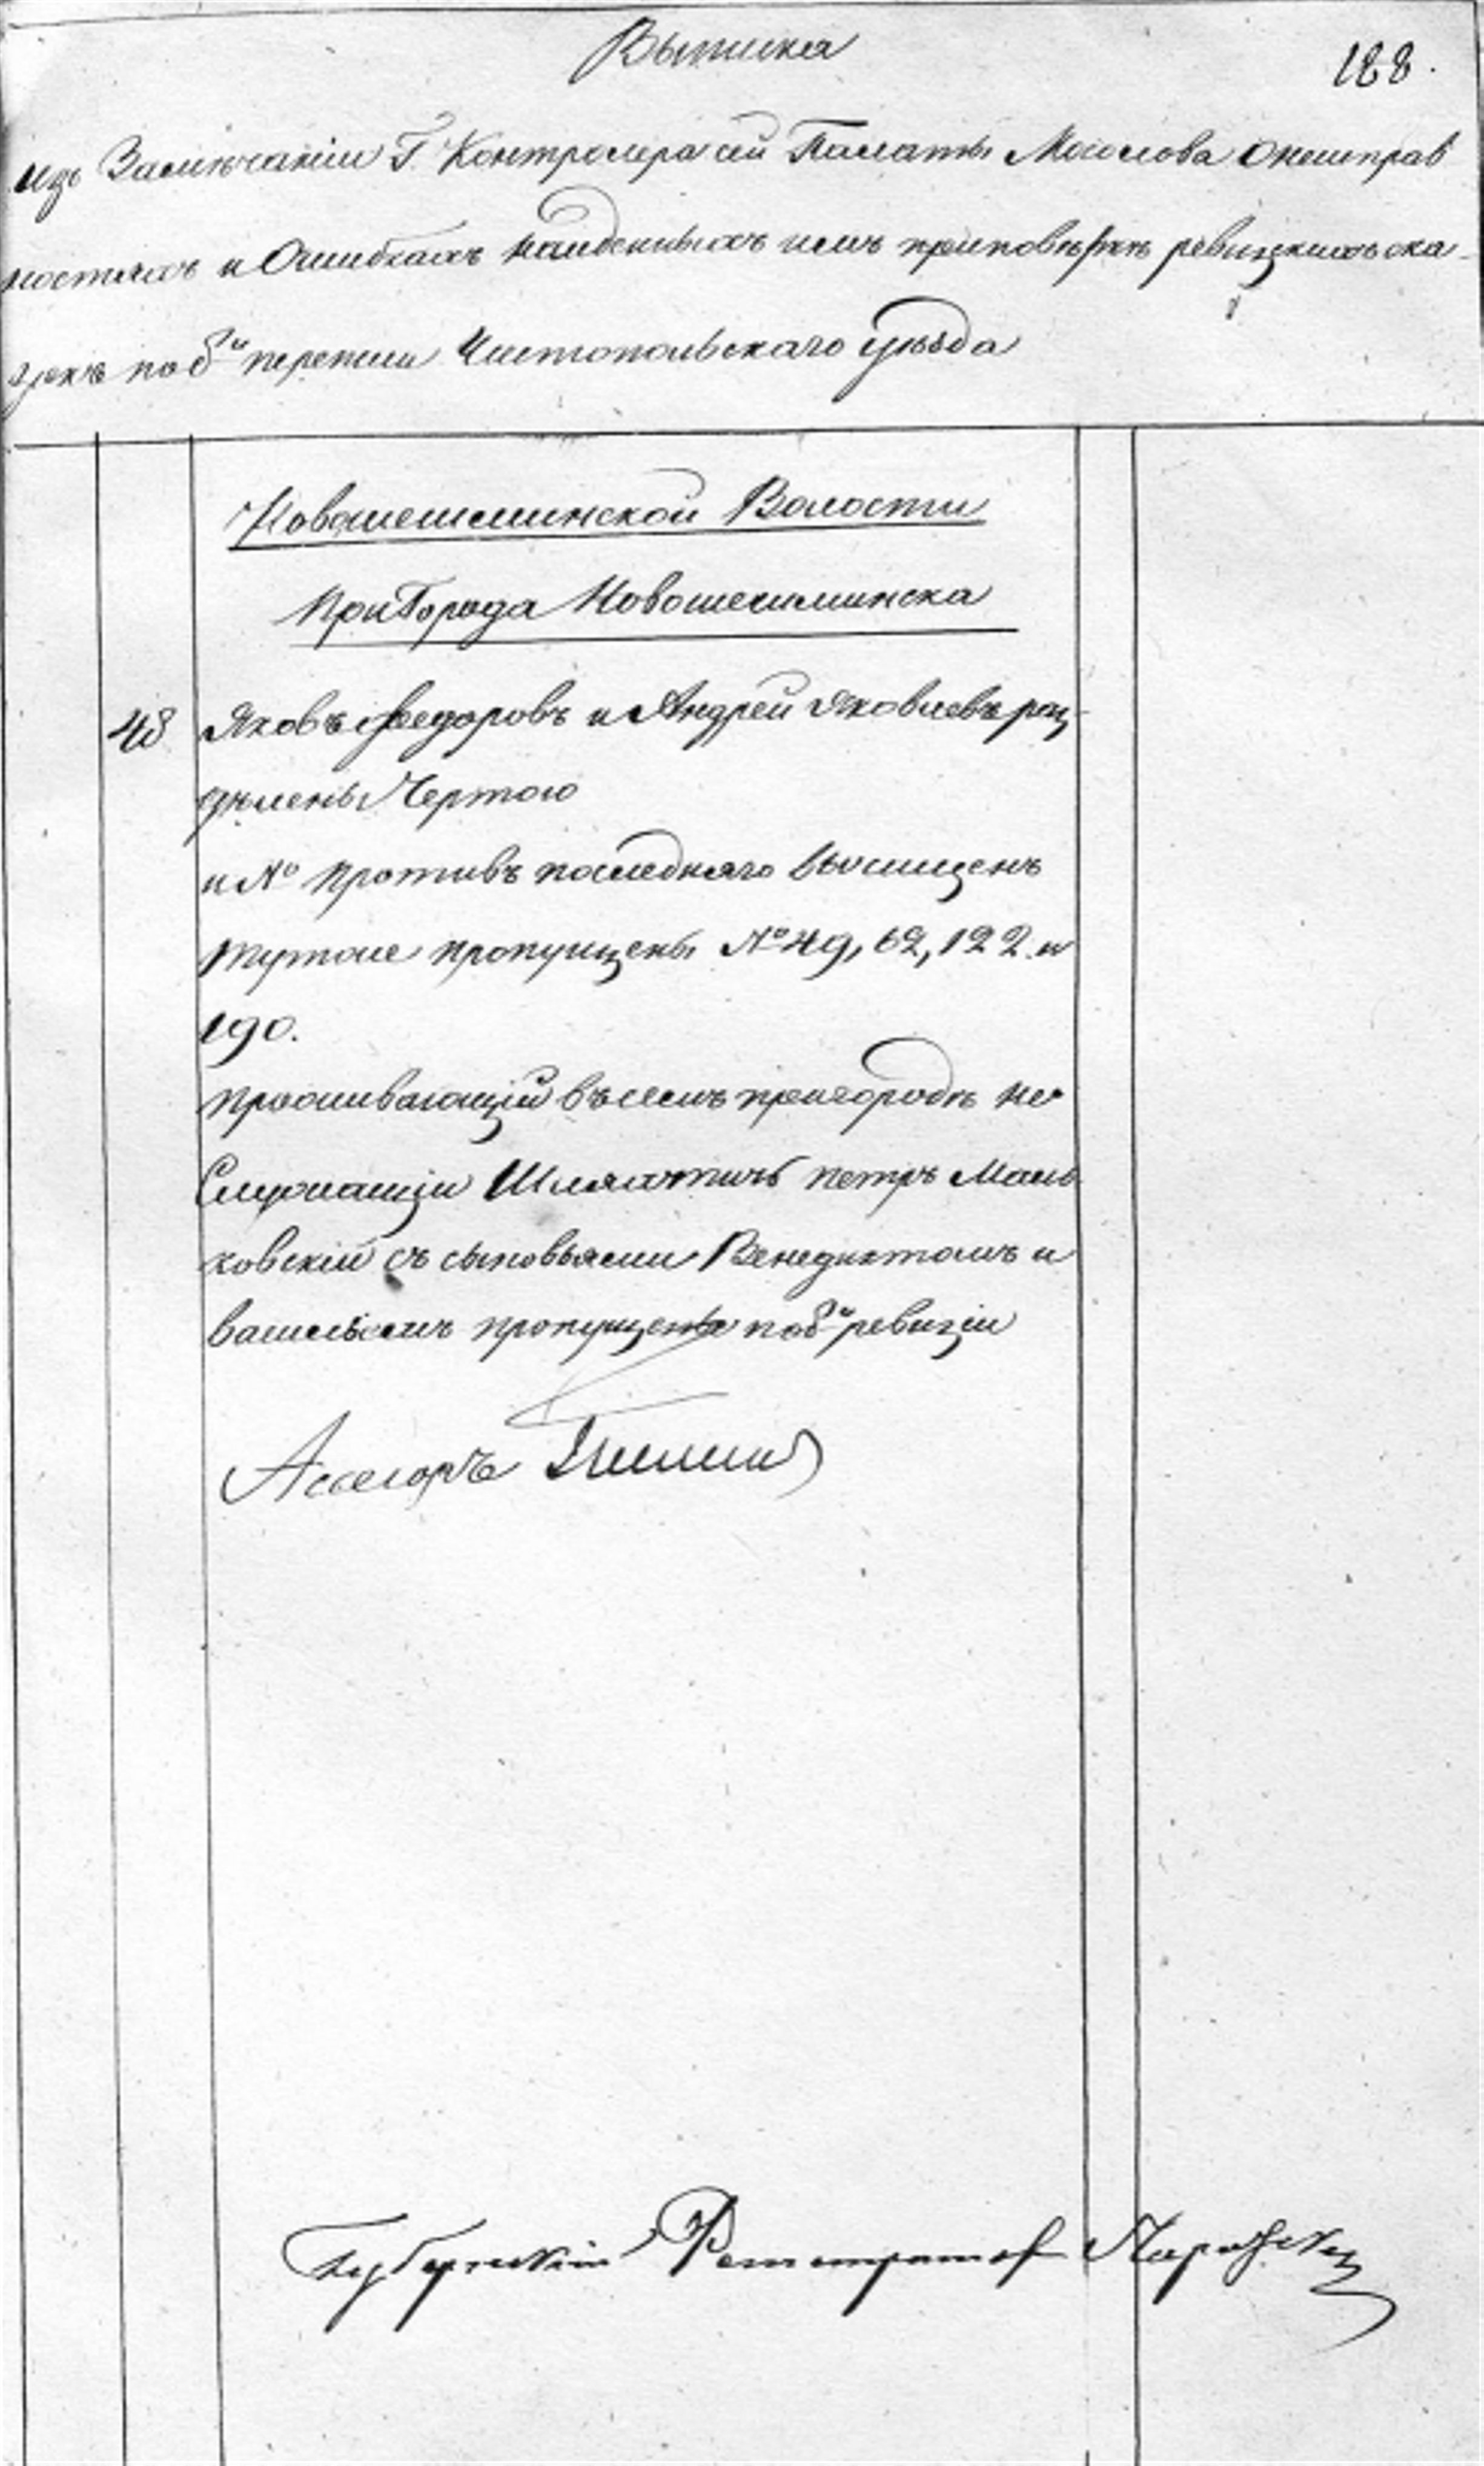 Выписка
188.
изъ Замѣчаніи Г. Контролера сей Палаты Мосолова онеисправ
ностяхъ и Ошибкахъ найденныхъ имъ приповѣркѣ ревизкихъ ска
зокъ по 8й переписи Чистопольскаго уѣзда
Новошешминской Волости
При Города Новошешминска
48 Яковъ Федоровъ и Андрей Яковлевъ раз
дѣлены Чертою
и № противъ последняго вычищенъ
тутже пропущены № 49, 62, 122 и
190.
проживающій въ семъ пригородѣ не
Служащіи Шляхтичь петръ Маль
ховскій съ сыновьями Венедиктомъ и
васильемъ пропущены по 8й ревизіи
Ассесоръ
Губернскій Регистраторъ